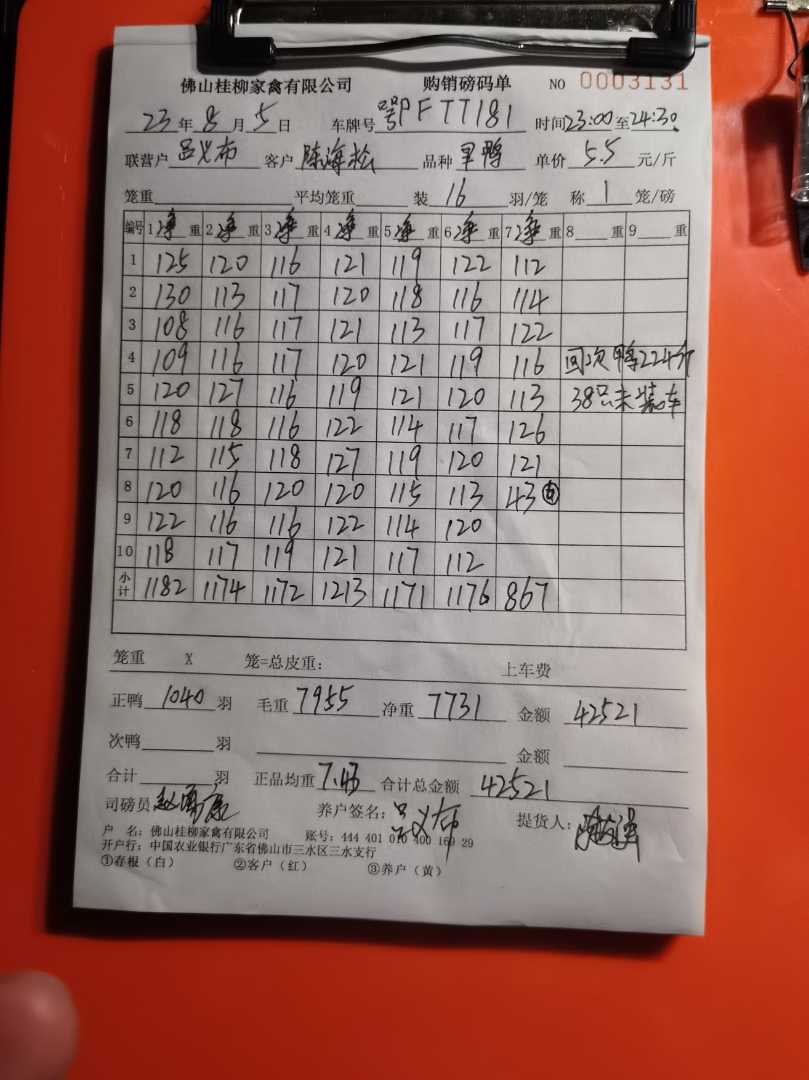 佛山桂柳家禽有限公司 购销磅码单 NO 0003131
23年8月5日 车牌号 粤PFTT181 时间23:00至24:30
联营户 吕义布 客户 陈海松 品种 旱鸭 单价 5.5 元/斤
笼重 平均笼重 装 16 羽/笼 称 1 笼/磅
编号 1净重 2净重 3净重 4净重 5净重 6净重 7净重 8 重 9 重
1 125 120 116 121 119 122 112
2 130 113 117 120 118 116 114
3 108 116 117 121 113 117 122
4 109 116 117 120 121 119 116 回次鸭224斤
5 120 127 116 119 121 120 113 38只未装车
6 118 118 116 122 114 117 126
7 112 115 118 127 119 120 121
8 120 116 120 120 115 113 43
9 122 116 116 122 114 120
10 118 117 119 121 117 112
小计 1182 1174 1172 1213 1171 1176 867
笼重 X 笼=总皮重: 上车费
正鸭 1040 羽 毛重 7955 净重 7731 金额 42521
次鸭 羽 金额
合计 羽 正品均重 7.43 合计总金额 42521
司磅员 赵 康 养户签名: 吕义布 提货人:
户 名: 佛山桂柳家禽有限公司 账号: 444 401 010 400 169 29
开户行: 中国农业银行广东省佛山市三水区三水支行
①存根(白) ②客户(红) ③养户(黄)